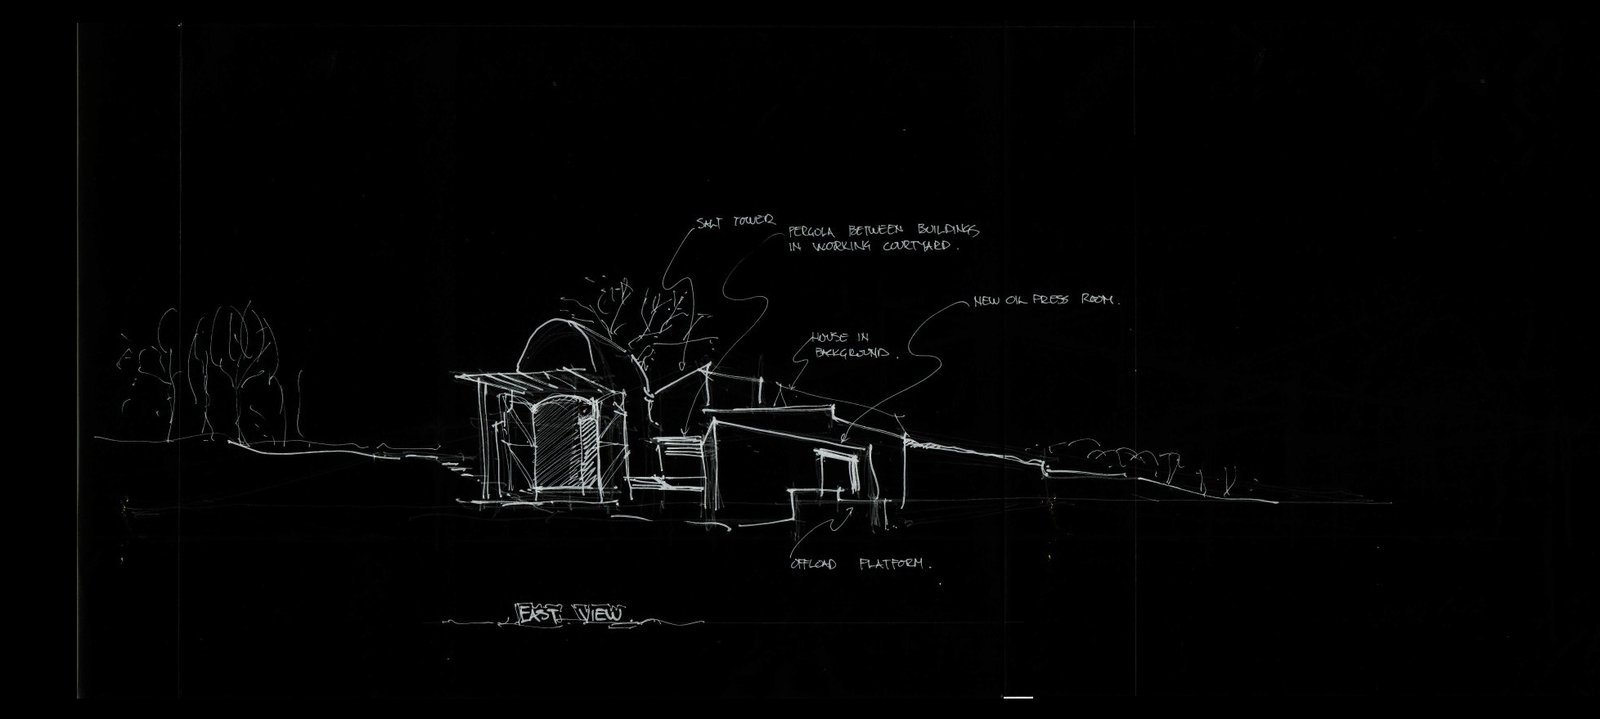 SALT TOWER
PERGOLA BETWEEN BUILDINGS
IN WORKING COURTYARD.
NEW OIL PRESS ROOM.
HOUSE IN
BACKGROUND.
OFFLOAD PLATFORM.
EAST VIEW